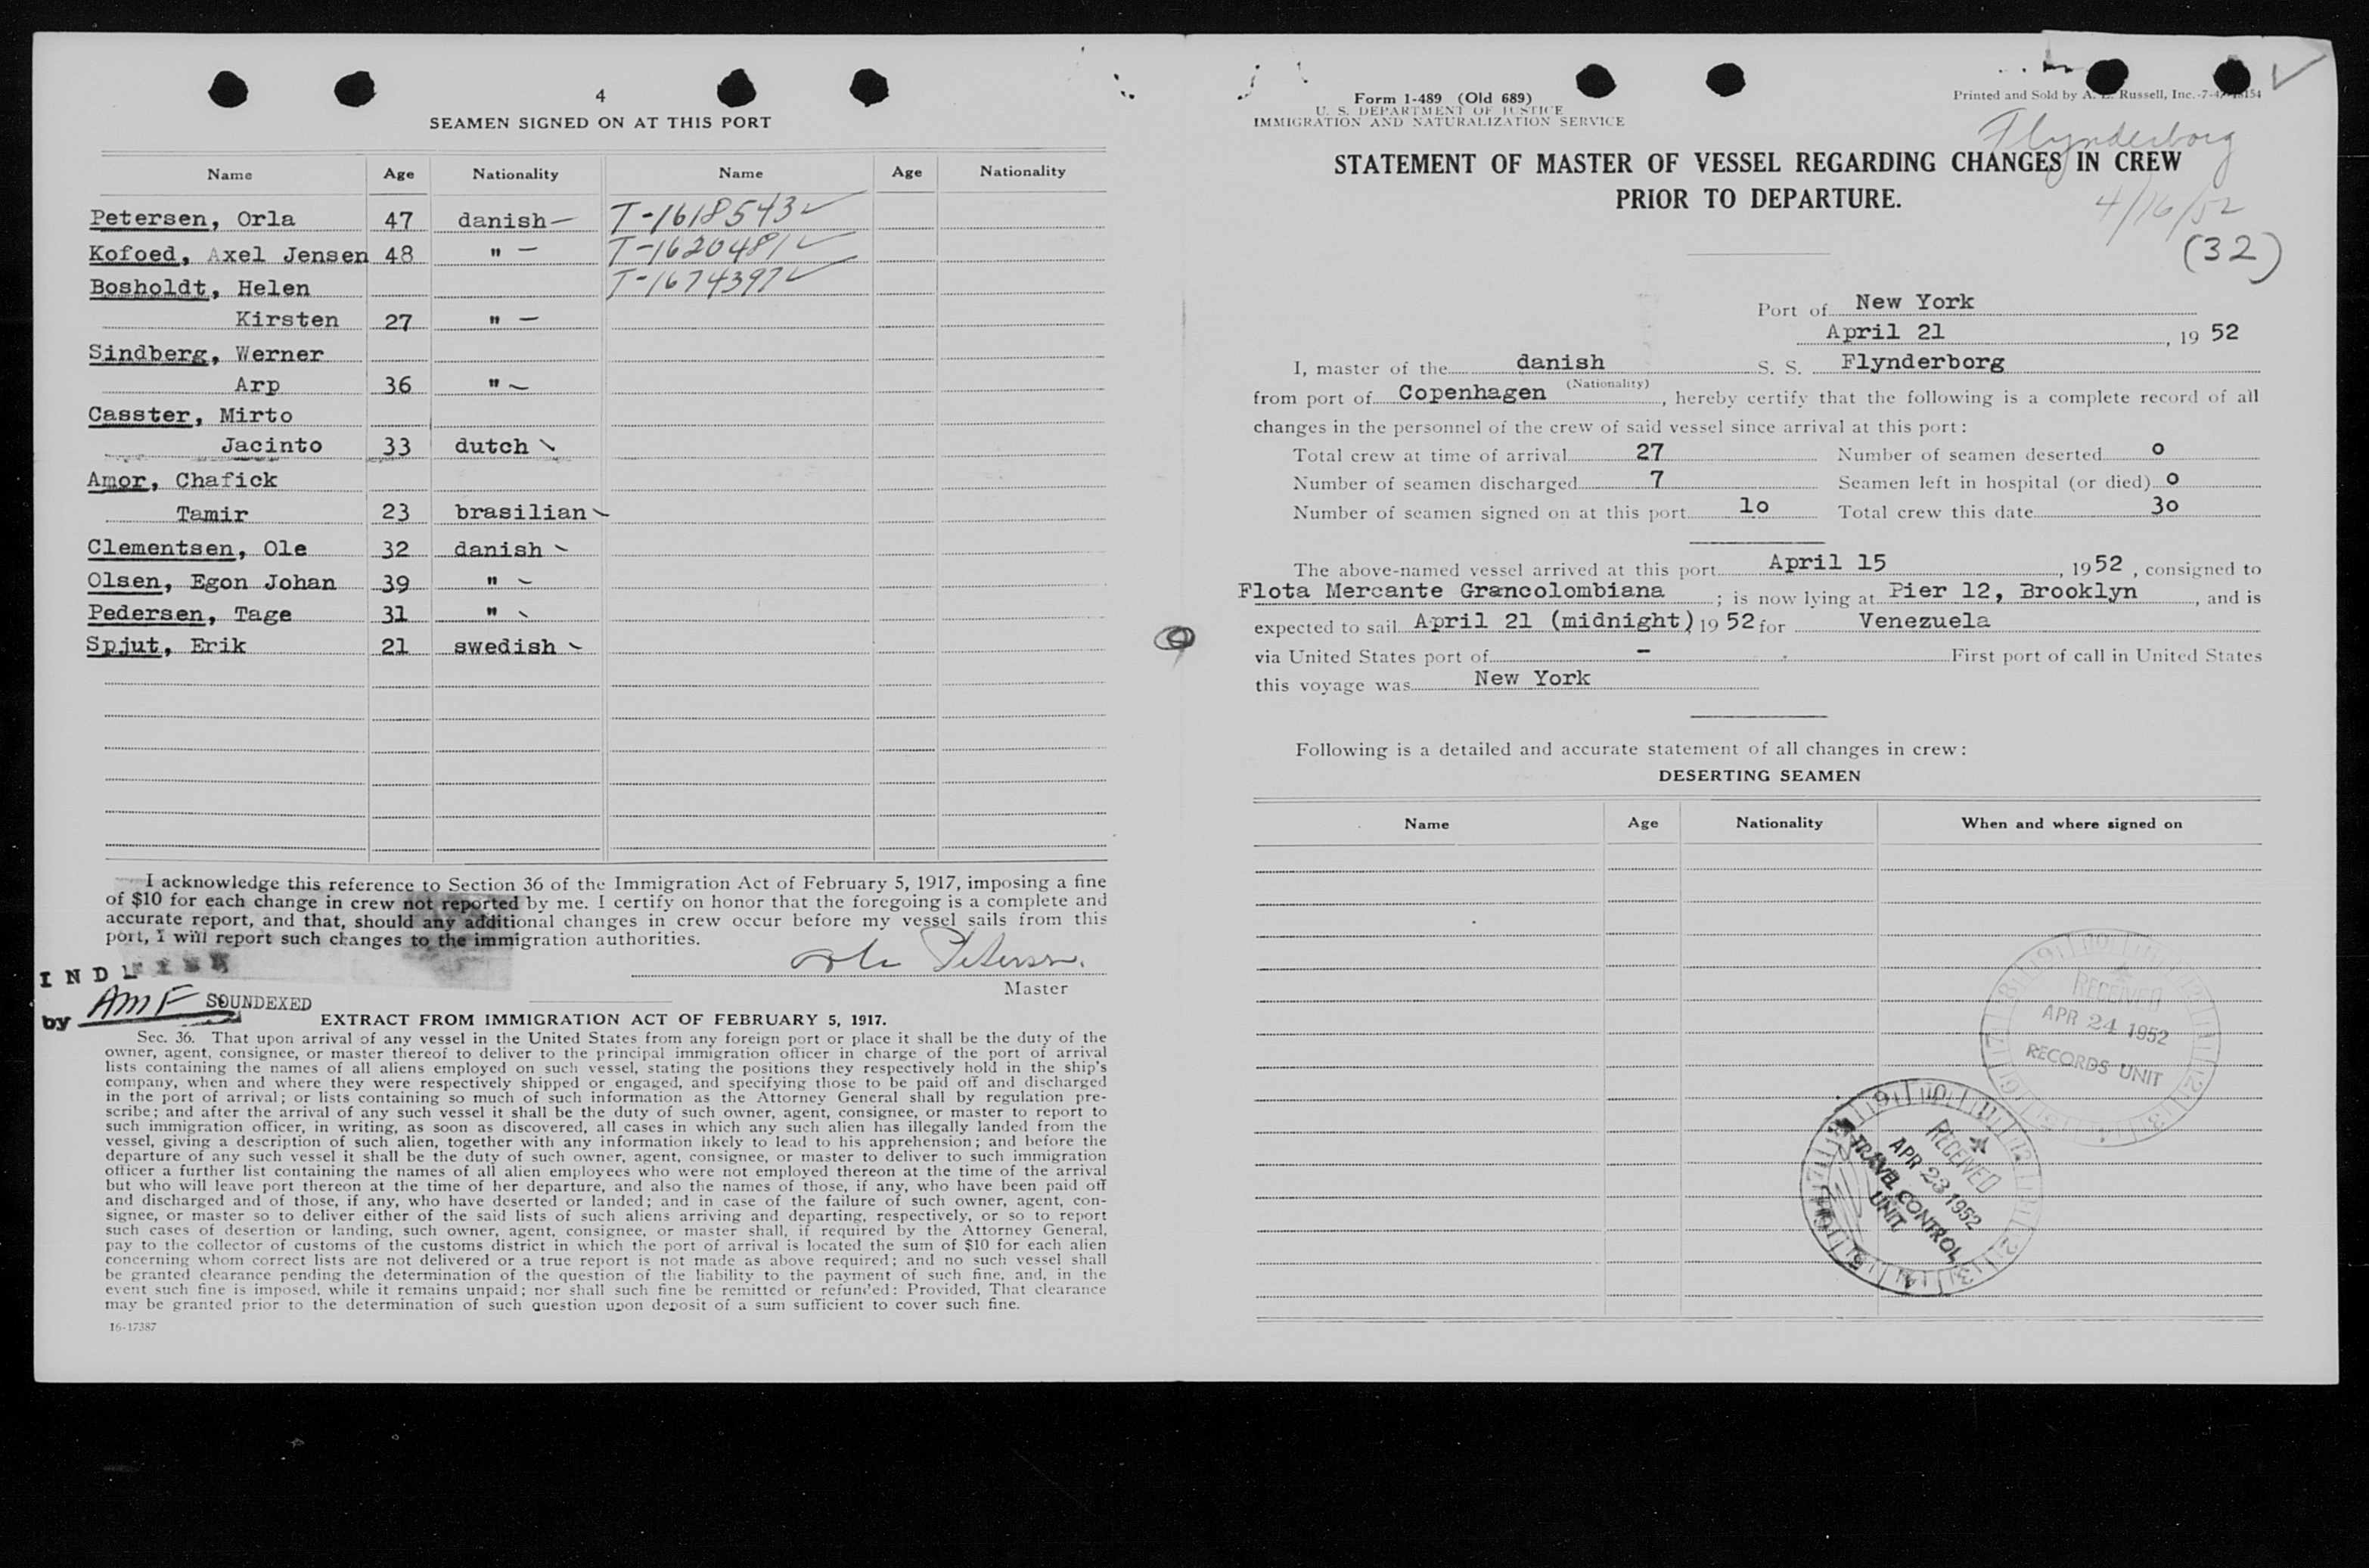 4
SEAMEN SIGNED ON AT THIS PORT
Name Age Nationality Name Age Nationality
Petersen, Orla 47 danish — T-1618543 ✓
Kofoed, Axel Jensen 48 " — T-1620481 ✓
Bosholdt, Helen T-1674397 ✓
Kirsten 27 " —
Sindberg, Werner
Arp 36 " ~
Casster, Mirto
Jacinto 33 dutch
Amor, Chafick
Tamir 23 brasilian
Clementsen, Ole 32 danish
Olsen, Egon Johan 39 "
Pedersen, Tage 31 "
Spjut, Erik 21 swedish
I acknowledge this reference to Section 36 of the Immigration Act of February 5, 1917, imposing a fine
of $10 for each change in crew not reported by me. I certify on honor that the foregoing is a complete and
accurate report, and that, should any additional changes in crew occur before my vessel sails from this
port, I will report such changes to the immigration authorities.
Orla Petersen.
Master
by AMF SOUNDEXED
EXTRACT FROM IMMIGRATION ACT OF FEBRUARY 5, 1917.
Sec. 36. That upon arrival of any vessel in the United States from any foreign port or place it shall be the duty of the
owner, agent, consignee, or master thereof to deliver to the principal immigration officer in charge of the port of arrival
lists containing the names of all aliens employed on such vessel, stating the positions they respectively hold in the ship's
company, when and where they were respectively shipped or engaged, and specifying those to be paid off and discharged
in the port of arrival; or lists containing so much of such information as the Attorney General shall by regulation pre-
scribe; and after the arrival of any such vessel it shall be the duty of such owner, agent, consignee, or master to report to
such immigration officer, in writing, as soon as discovered, all cases in which any such alien has illegally landed from the
vessel, giving a description of such alien, together with any information likely to lead to his apprehension; and before the
departure of any such vessel it shall be the duty of such owner, agent, consignee, or master to deliver to such immigration
officer a further list containing the names of all alien employees who were not employed thereon at the time of the arrival
but who will leave port thereon at the time of her departure, and also the names of those, if any, who have been paid off
and discharged and of those, if any, who have deserted or landed; and in case of the failure of such owner, agent, con-
signee, or master so to deliver either of the said lists of such aliens arriving and departing, respectively, or so to report
such cases of desertion or landing, such owner, agent, consignee, or master shall, if required by the Attorney General,
pay to the collector of customs of the customs district in which the port of arrival is located the sum of $10 for each alien
concerning whom correct lists are not delivered or a true report is not made as above required; and no such vessel shall
be granted clearance pending the determination of the question of the liability to the payment of such fine, and, in the
event such fine is imposed, while it remains unpaid; nor shall such fine be remitted or refunded: Provided, That clearance
may be granted prior to the determination of such question upon deposit of a sum sufficient to cover such fine.
16-17387
Form 1-489 (Old 689)
U. S. DEPARTMENT OF JUSTICE
IMMIGRATION AND NATURALIZATION SERVICE
Printed and Sold by Russell, Inc.
Flynderborg
STATEMENT OF MASTER OF VESSEL REGARDING CHANGES IN CREW
PRIOR TO DEPARTURE.
4/16/52
(32)
Port of New York
April 21, 19 52
I, master of the danish S. S. Flynderborg
(Nationality)
from port of Copenhagen, hereby certify that the following is a complete record of all
changes in the personnel of the crew of said vessel since arrival at this port:
Total crew at time of arrival 27 Number of seamen deserted o
Number of seamen discharged 7 Seamen left in hospital (or died) o
Number of seamen signed on at this port lo Total crew this date 3o
The above-named vessel arrived at this port April 15, 1952, consigned to
Flota Mercante Grancolombiana; is now lying at Pier 12, Brooklyn, and is
expected to sail April 21 (midnight) 19 52 for Venezuela
via United States port of - First port of call in United States
this voyage was New York
Following is a detailed and accurate statement of all changes in crew:
DESERTING SEAMEN
Name Age Nationality When and where signed on
RECEIVED
APR 24 1952
RECORDS UNIT
RECEIVED
APR 23 1952
TRAVEL CONTROL
UNIT